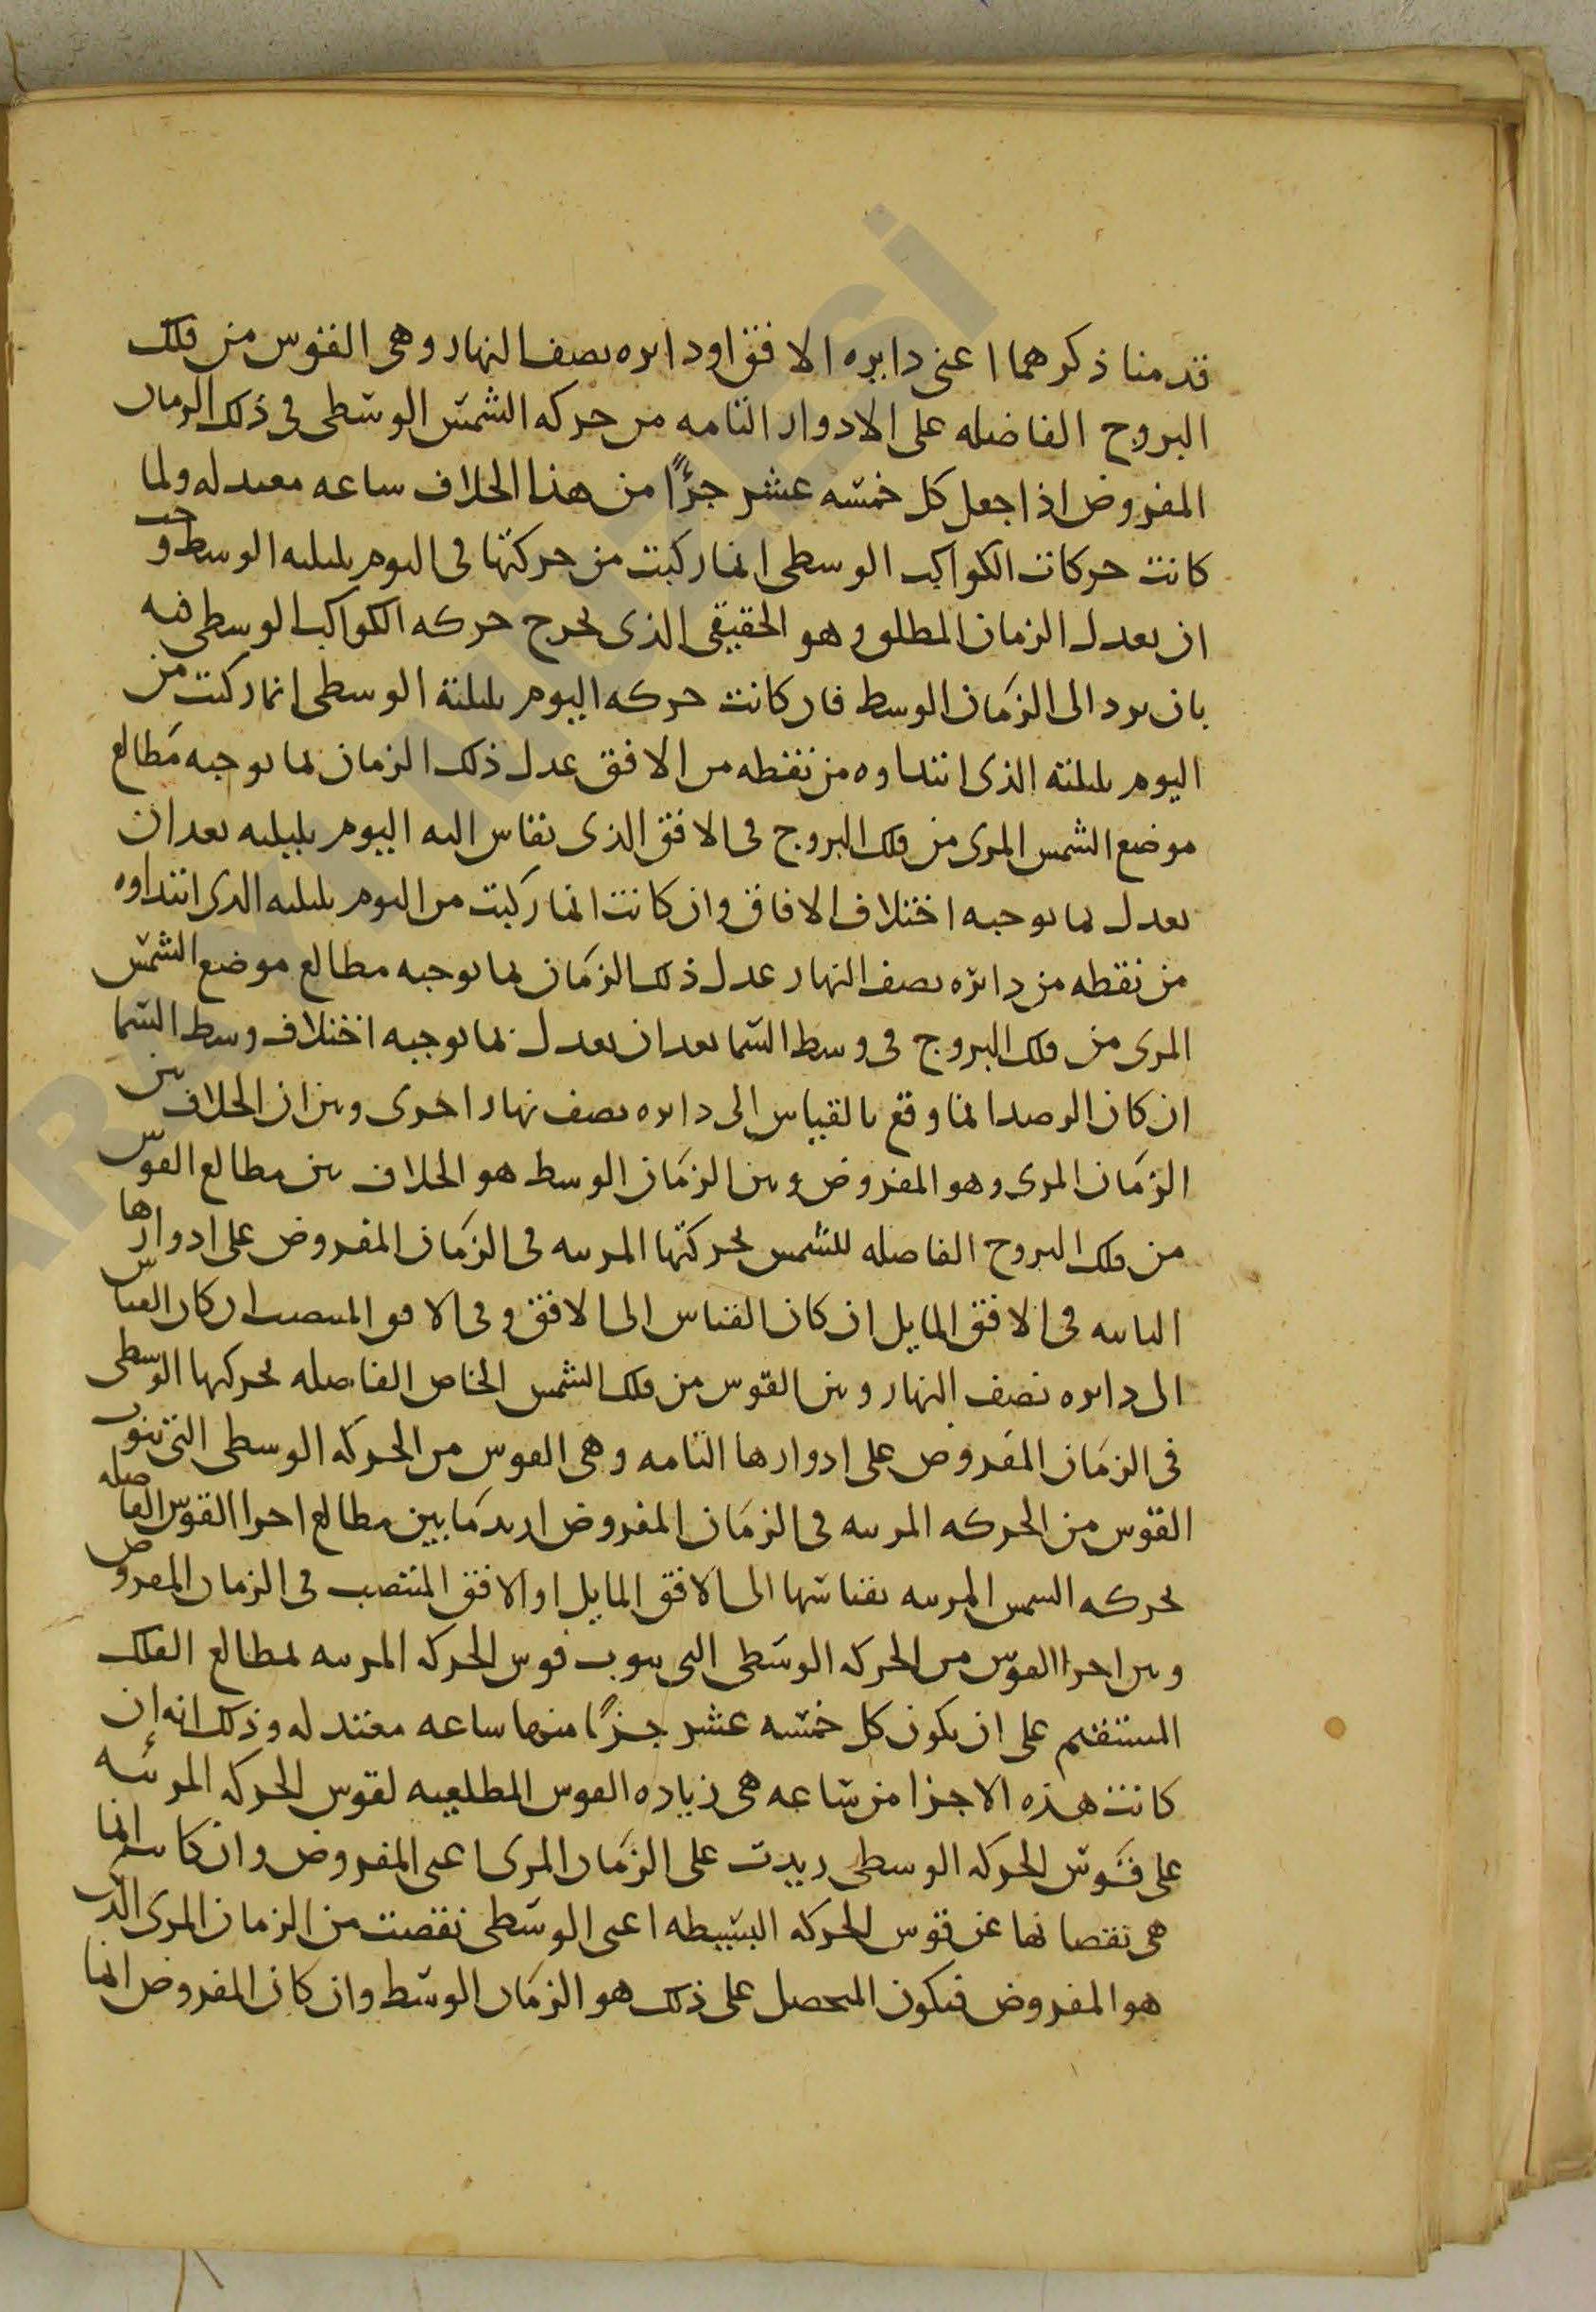 قدمنا ذكرهما اعنى دايره الافق او دايره نصف النهار وهى القوس من فلك
البروج الفاضله على الادوار التامه من حركه الشمس الوسطى فى ذلك الزمان
المفروض اذا جعل كل خمسه عشر جزءًا من هذا الخلاف ساعه معتدله ولما
كانت حركات الكواكب الوسطى انما ركبت من حركتها فى اليوم بليليه الوسط وجب
ان يعدل الزمان المطلق وهو الحقيقى الذى يخرج حركه الكواكب الوسطى فيه
بان يرد الى الزمان الوسط فان كانت حركه اليوم بليلته الوسطى انما ركبت من
اليوم بليلته الذى ابتداوه من نقطه من الافق عدل ذلك الزمان بما يوجبه مطالع
موضع الشمس المرى من فلك البروج فى الافق الذى يقاس اليه اليوم بليليه بعد ان
يعدل بما يوجبه اختلاف الافاق وان كانت انما ركبت من اليوم بليليه الذى ابتداوه
من نقطه من دائره نصف النهار عدل ذلك الزمان بما يوجبه مطالع موضع الشمس
المرى من فلك البروج فى وسط السما بعد ان يعدل بما يوجبه اختلاف وسط السما
ان كان الرصد انما وقع بالقياس الى دايره نصف نهار اخرى وبين ان الخلاف بين
الزمان المرى وهو المفروض وبين الزمان الوسط هو الخلاف بين مطالع القوس
من فلك البروج الفاضله للشمس بحركتها المريه فى الزمان المفروض على ادوارها
التامه فى الافق المايل ان كان القياس الى الافق وفى الافق المنتصب ان كان القياس
الى دايره نصف النهار وبين القوس من فلك الشمس الخاص الفاضله بحركتها الوسطى
فى الزمان المفروض على ادوارها التامه وهى القوس من الحركه الوسطى التى تنوب
القوس من الحركه المريه فى الزمان المفروض اريد ما بين مطالع اجزا القوس الفاضله
بحركه الشمس المريه بقياسها الى الافق المايل او الافق المنتصب فى الزمان المفروض
وبين اجزا القوس من الحركه الوسطى التى تنوب قوس الحركه المريه لمطالع الفلك
المستقيم على ان يكون كل خمسه عشر جزءًا منها ساعه معتدله وذلك انه إن
كانت هذه الاجزا من ساعه هى زياده القوس المطلعيه لقوس الحركه المرئيه
على قوس الحركه الوسطى زيدت على الزمان المرى اعنى المفروض وان كانت انما
هى نقصانها عن قوس الحركه البسيطه اعنى الوسطى نقصت من الزمان المرى الذى
هو المفروض فيكون المحصل على ذلك هو الزمان الوسط وان كان المفروض انما